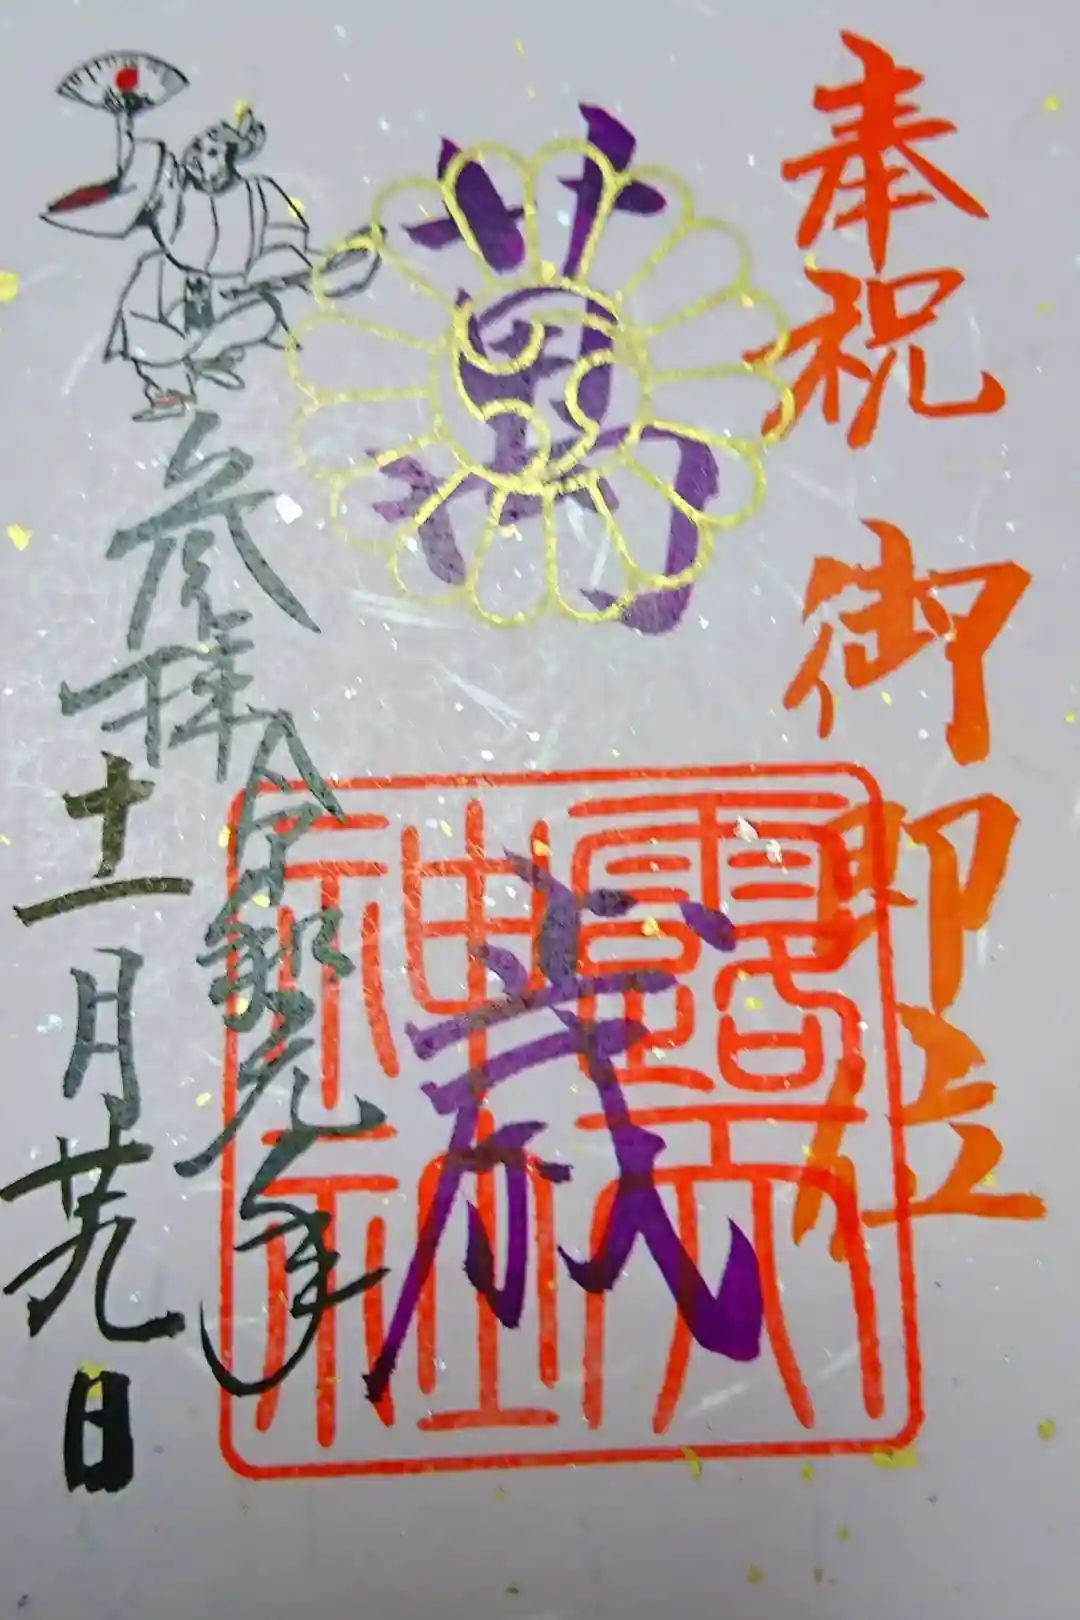 奉祝 御即位
萬歳
露天神社
令和元年
参拝
十一月廿九日